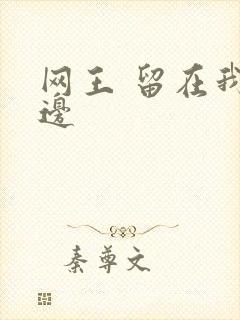 网王 留在我
邊
秦尊文